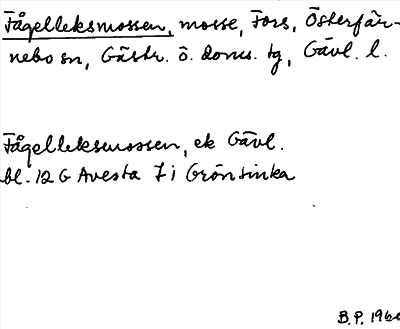 Fågelleksmossen, mosse, Fors, Österfär-
nebo sn, Gästr. ö. doms. tg, Gävl. l.
Fågelleksmossen, ek Gävl.
bl. 12 G Avesta 7 i Grönsinka
B.P. 1960